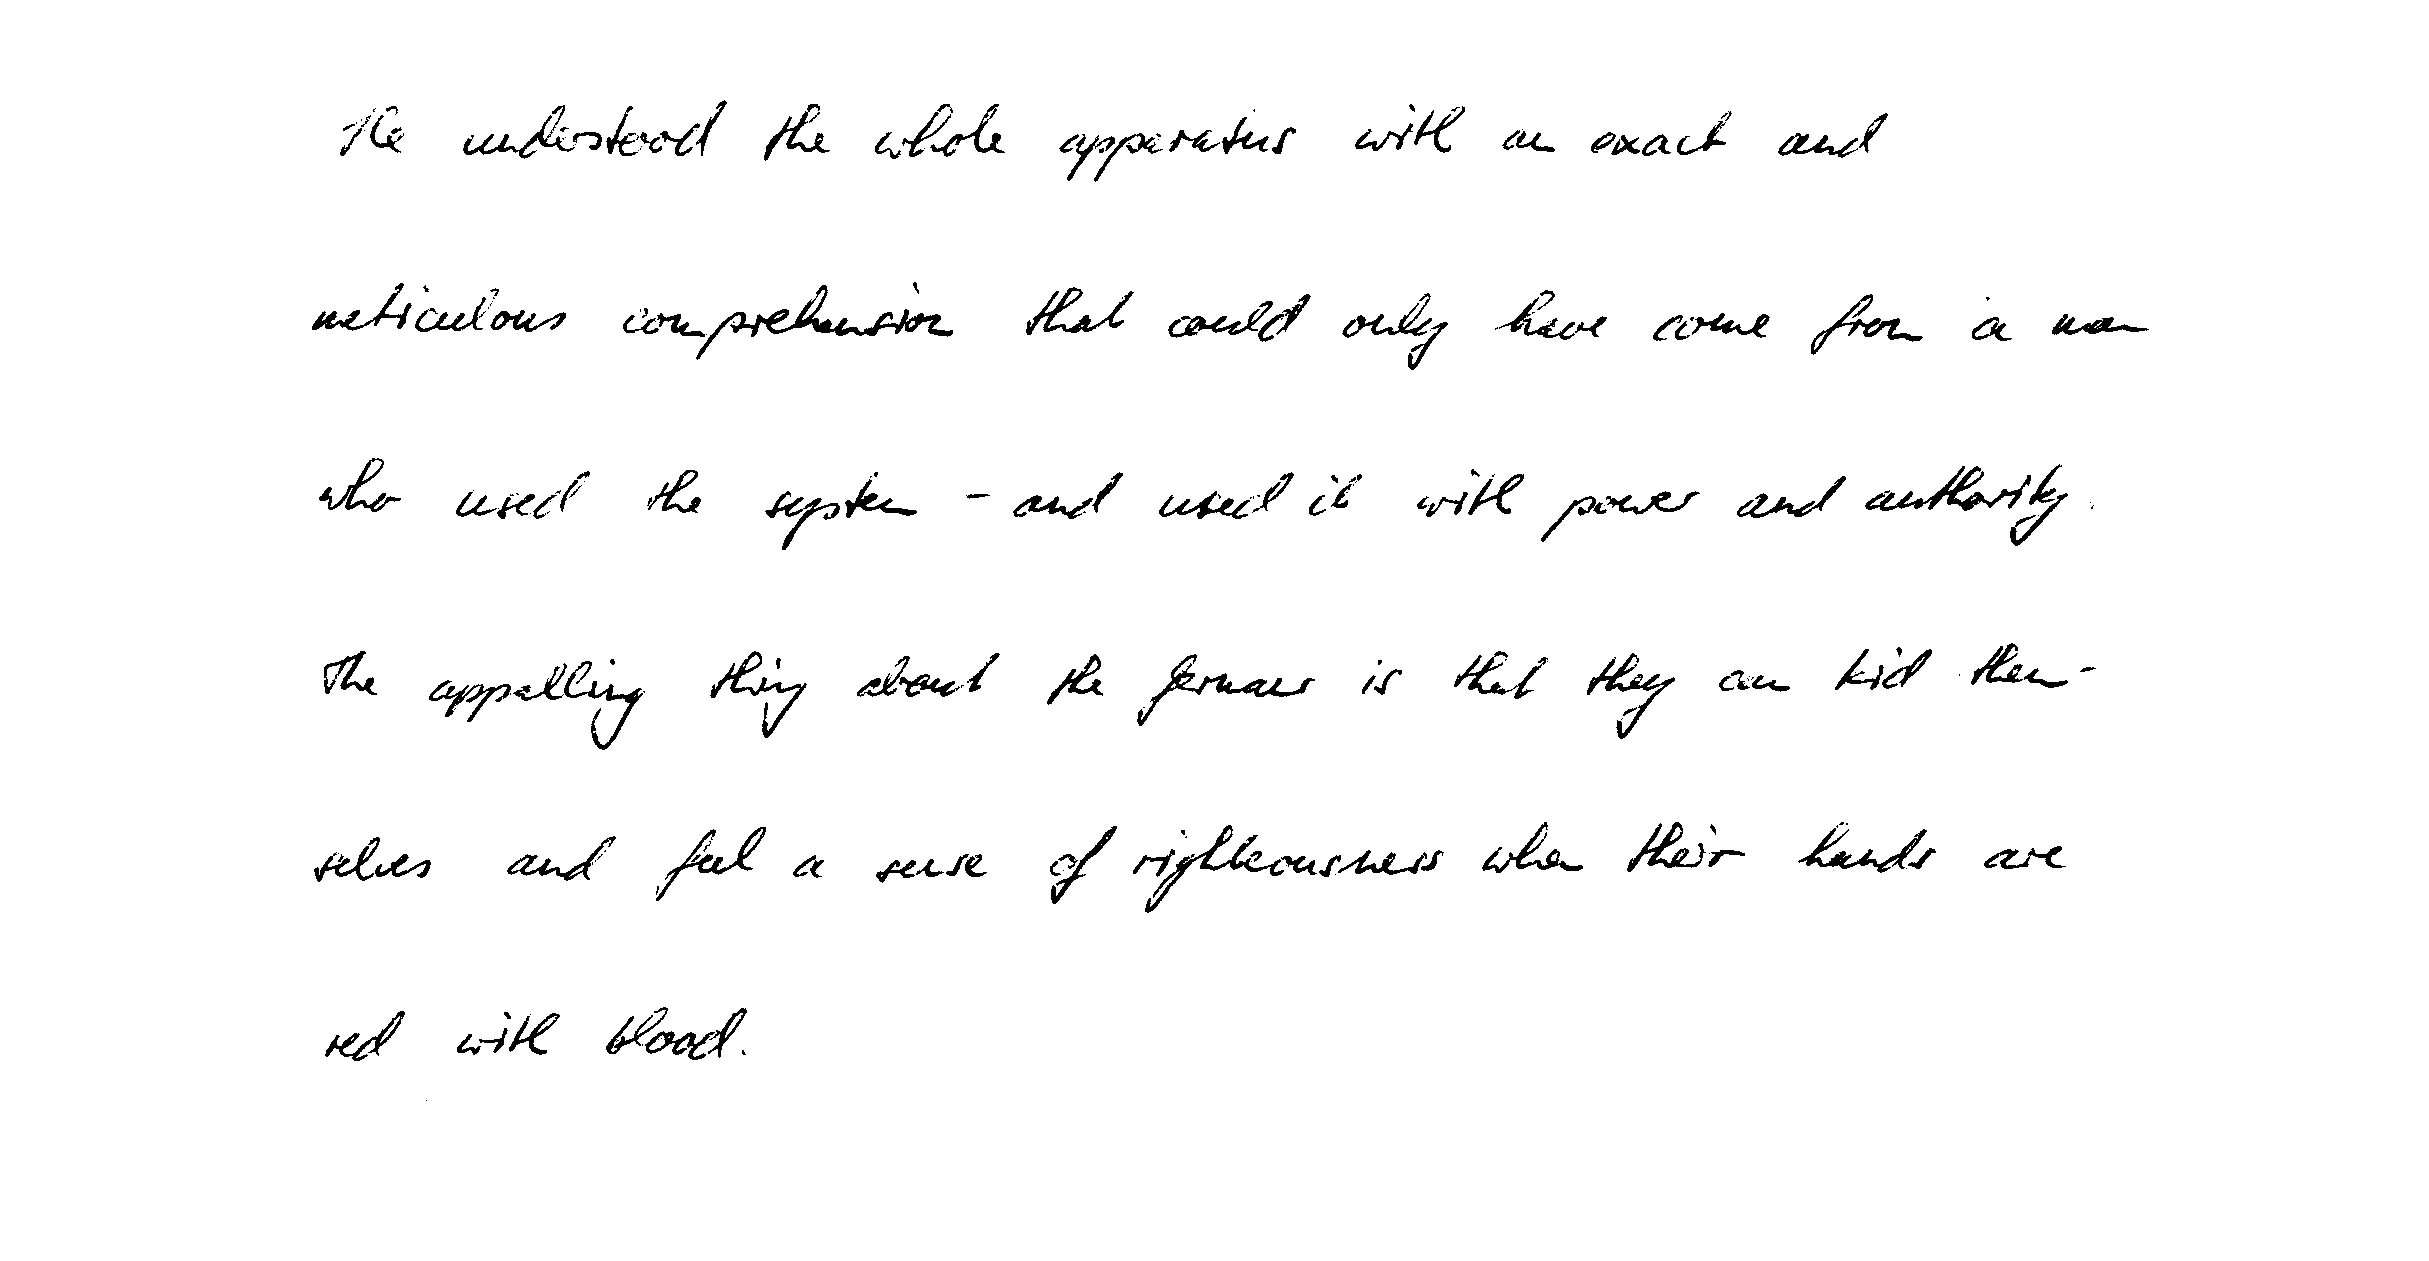 He understood the whole apparatus with an exact and
meticulous comprehension that could only have come from a man
who used the system - and used it with power and authority.
The appalling thing about the Germans is that they can kid them-
selves and feel a sense of righteousness when their hands are
red with blood.